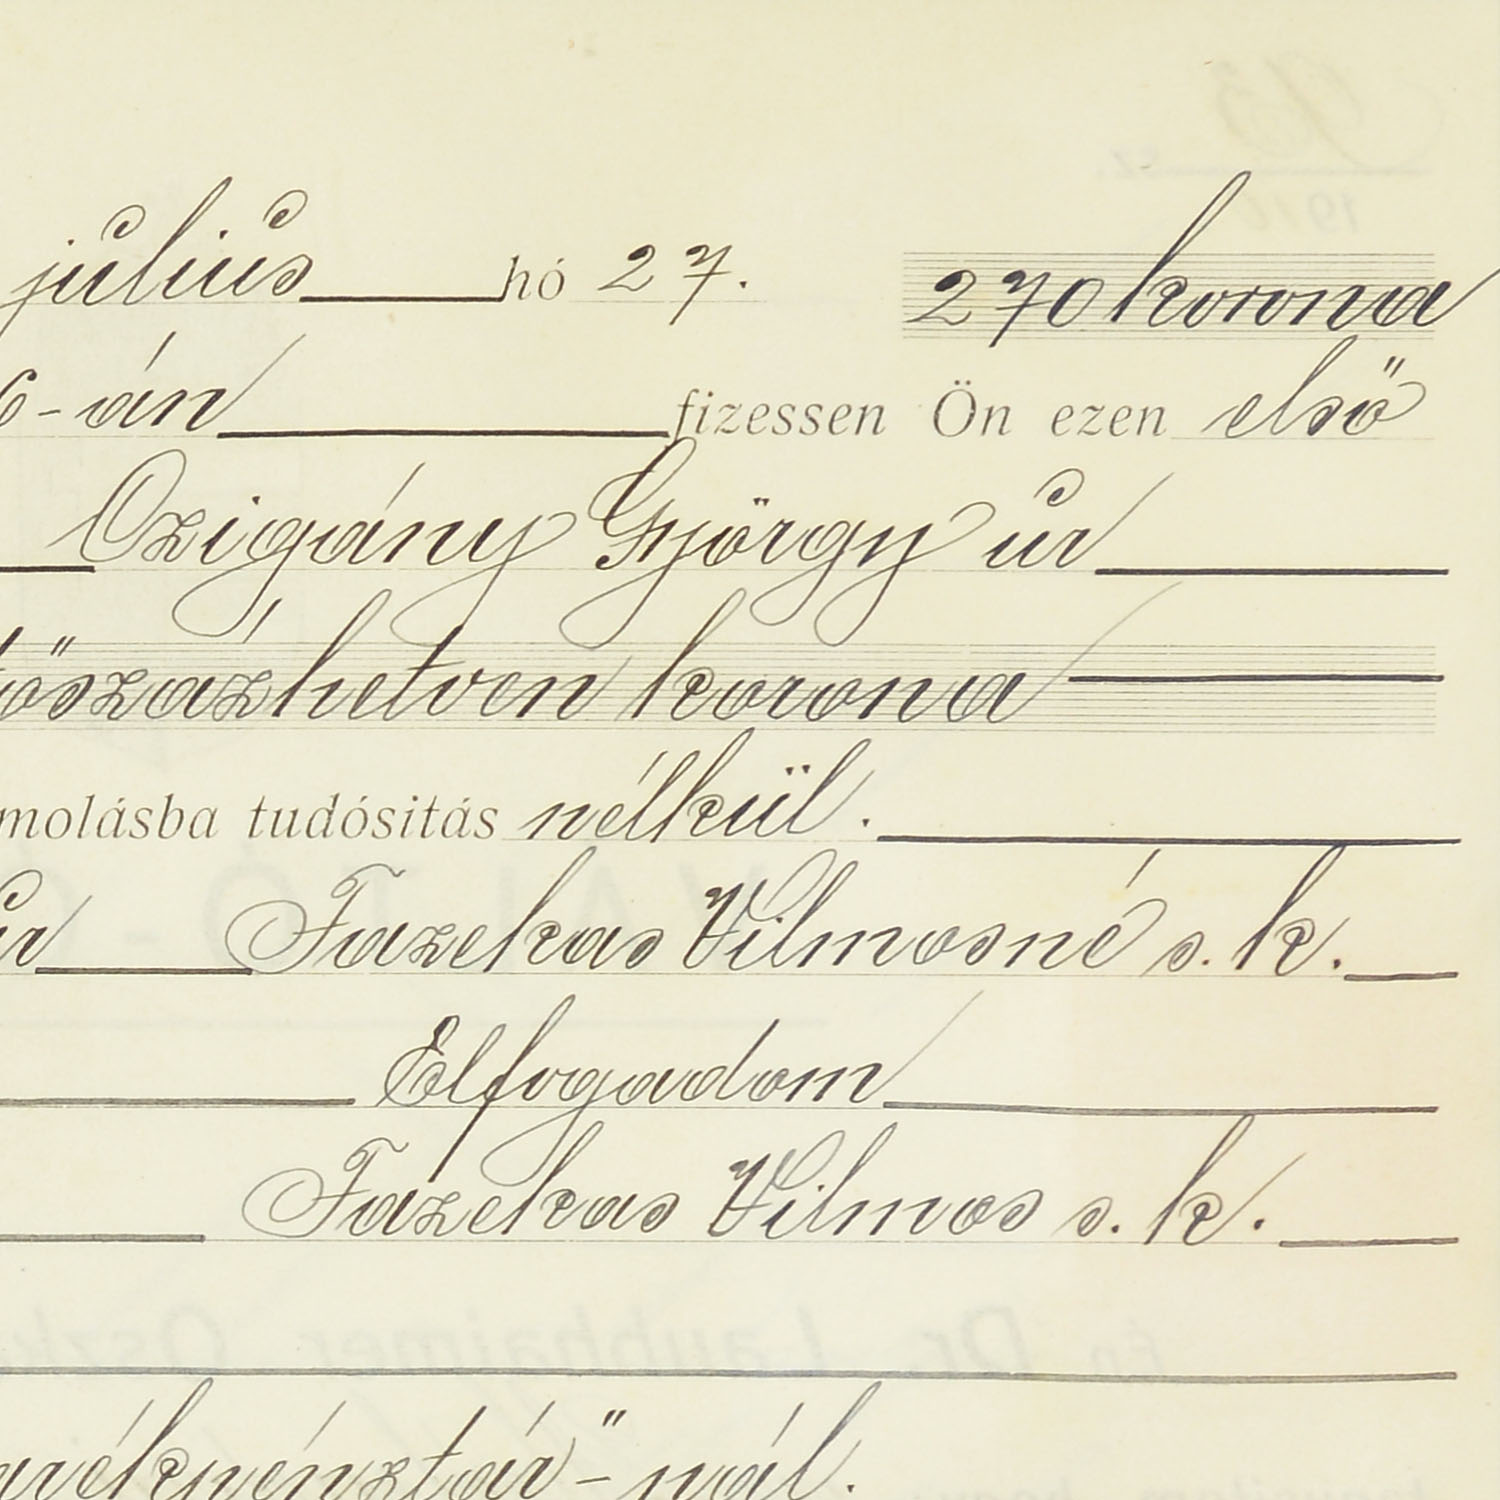 július hó 27. 270 korona
6-án fizessen Ön ezen első
Czigány György úr
tőszázhetven korona
molásba tudósitás nélkül.
úr Fazekas Vilmosné s. k.
Elfogadom
Fazekas Vilmos s. k.
arékpénztár"-nál.